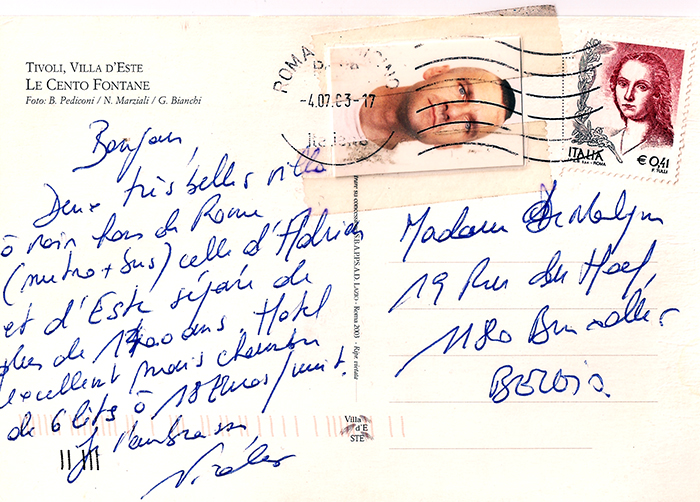 TIVOLI, VILLA D'ESTE
LE CENTO FONTANE
Foto: B. Pediconi / N. Marziali / G. Bianchi
ROMA
-4.07.03-17
ITALIA
€ 0,41
Bonjour,
Deux très belles villa
à voir hors de Rome
(metro + bus) celle d'Hadrien
et d'Este séparé de
plus de 1400 ans. Hotel
excellent mais chambre
de 6 lits à 18 Euros/nuit.
Je t'embrasse
Nicolas
Madame
19 Rue du Hoef,
1180 Bruxelles
BELGIO.
Roma 2003 - Ripr. vietata
Villa
d'E
STE